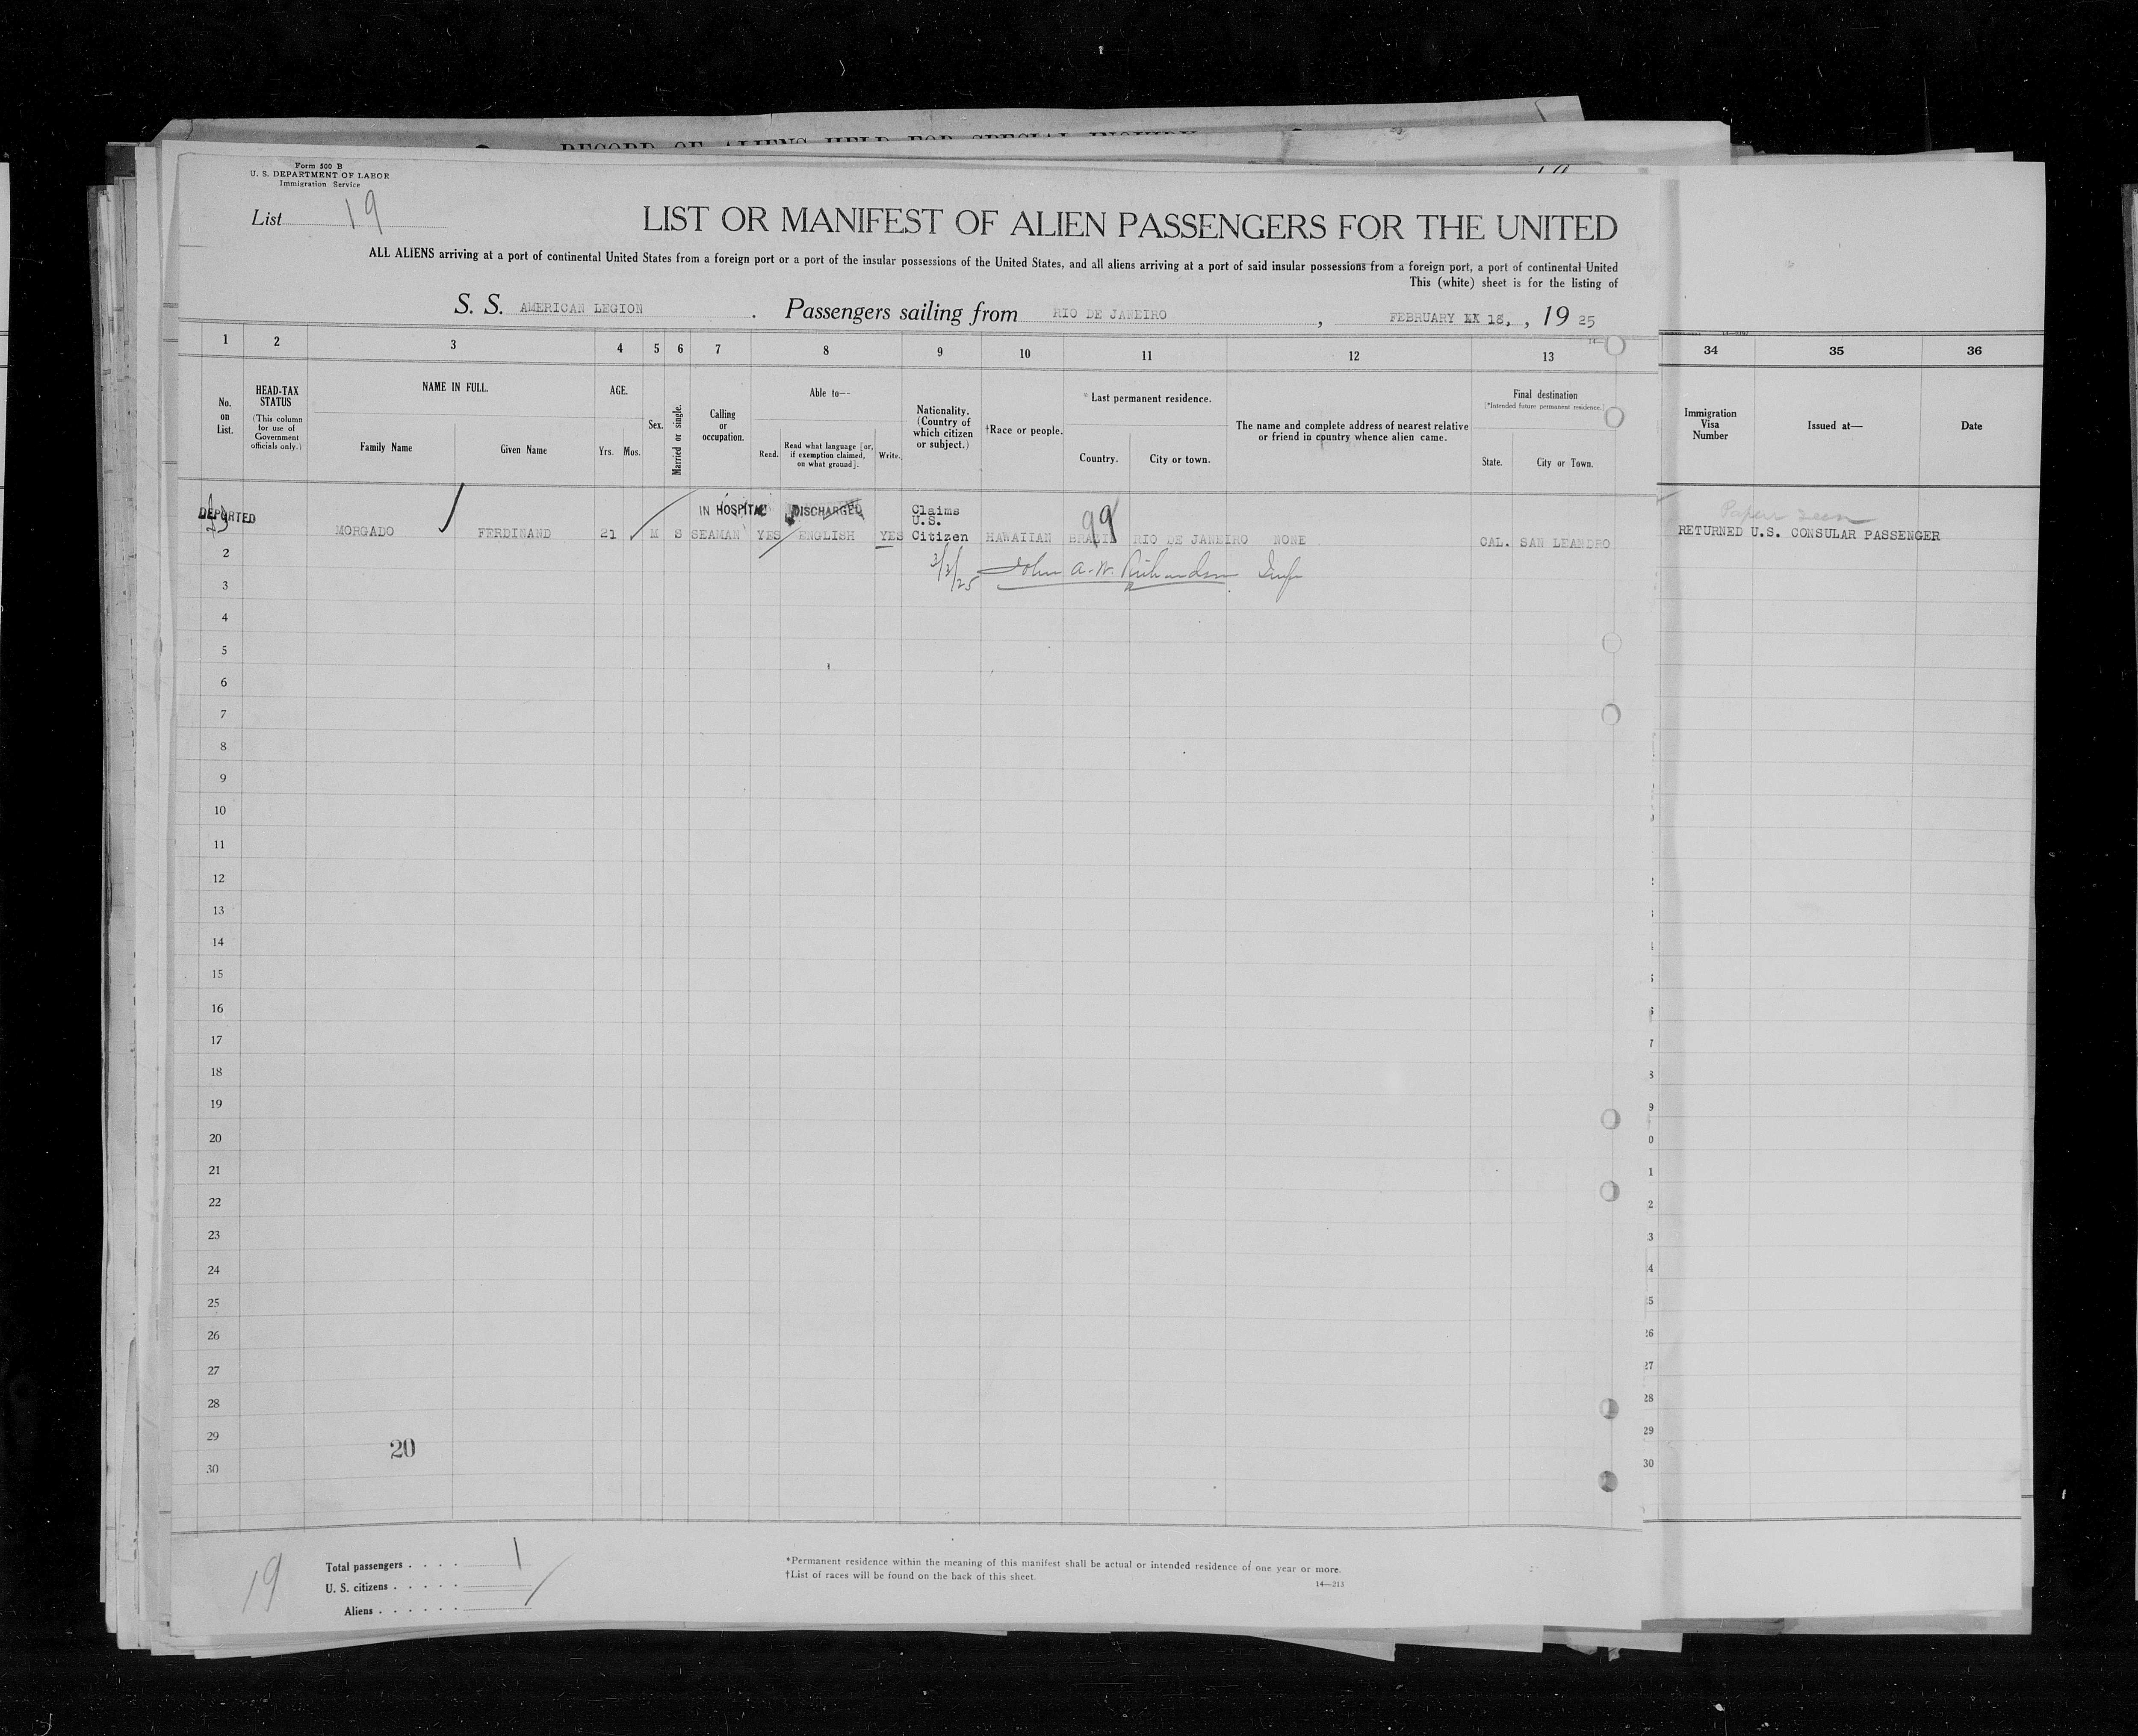 RECORD OF ALIENS HELD FOR SPECIAL INQUIRY
Form 500 B
U. S. DEPARTMENT OF LABOR
Immigration Service
List 19
LIST OR MANIFEST OF ALIEN PASSENGERS FOR THE UNITED
ALL ALIENS arriving at a port of continental United States from a foreign port or a port of the insular possessions of the United States, and all aliens arriving at a port of said insular possessions from a foreign port, a port of continental United
This (white) sheet is for the listing of
S. S. AMERICAN LEGION . Passengers sailing from RIO DE JANEIRO , FEBRUARY 18, , 19 25
1 2 3 4 5 6 7 8 9 10 11 12 13 34 35 36
No. on List.
HEAD-TAX STATUS
(This column for use of Government officials only.)
NAME IN FULL.
Family Name
Given Name
AGE.
Yrs. Mos.
Sex.
Married or single.
Calling or occupation.
Able to—
Read.
Read what language [or, if exemption claimed, on what ground].
Write.
Nationality. (Country of which citizen or subject.)
†Race or people.
*Last permanent residence.
Country.
City or town.
The name and complete address of nearest relative or friend in country whence alien came.
Final destination
[*Intended future permanent residence.]
State.
City or Town.
Immigration Visa Number
Issued at—
Date
DEPORTED
IN HOSPITAL DISCHARGED
Claims U.S. Citizen
99
Paper seen
MORGADO FERDINAND 21 M S SEAMAN YES ENGLISH YES HAWAIIAN BRAZIL RIO DE JANEIRO NONE CAL. SAN LEANDRO
RETURNED U.S. CONSULAR PASSENGER
3/3/25 John A. W. Richardson Insp
2
3
4
5
6
7
8
9
10
11
12
13
14
15
16
17
18
19
20
21
22
23
24
25
26
27
28
29
20
30
19
Total passengers . . . . 1
U. S. citizens . . . . .
Aliens . . . . . .
*Permanent residence within the meaning of this manifest shall be actual or intended residence of one year or more.
†List of races will be found on the back of this sheet.
14—213